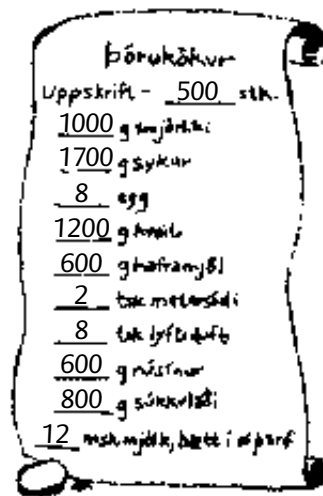 Þórukökur
Uppskrift - 500 stk.
1000 g smjörlíki
1700 g sykur
8 egg
1200 g hveiti
600 g haframjöl
2 tsk matarsódi
8 tsk lyftiduft
600 g rúsínur
800 g súkkulaði
12 msk mjólk, bætt í ef þarf